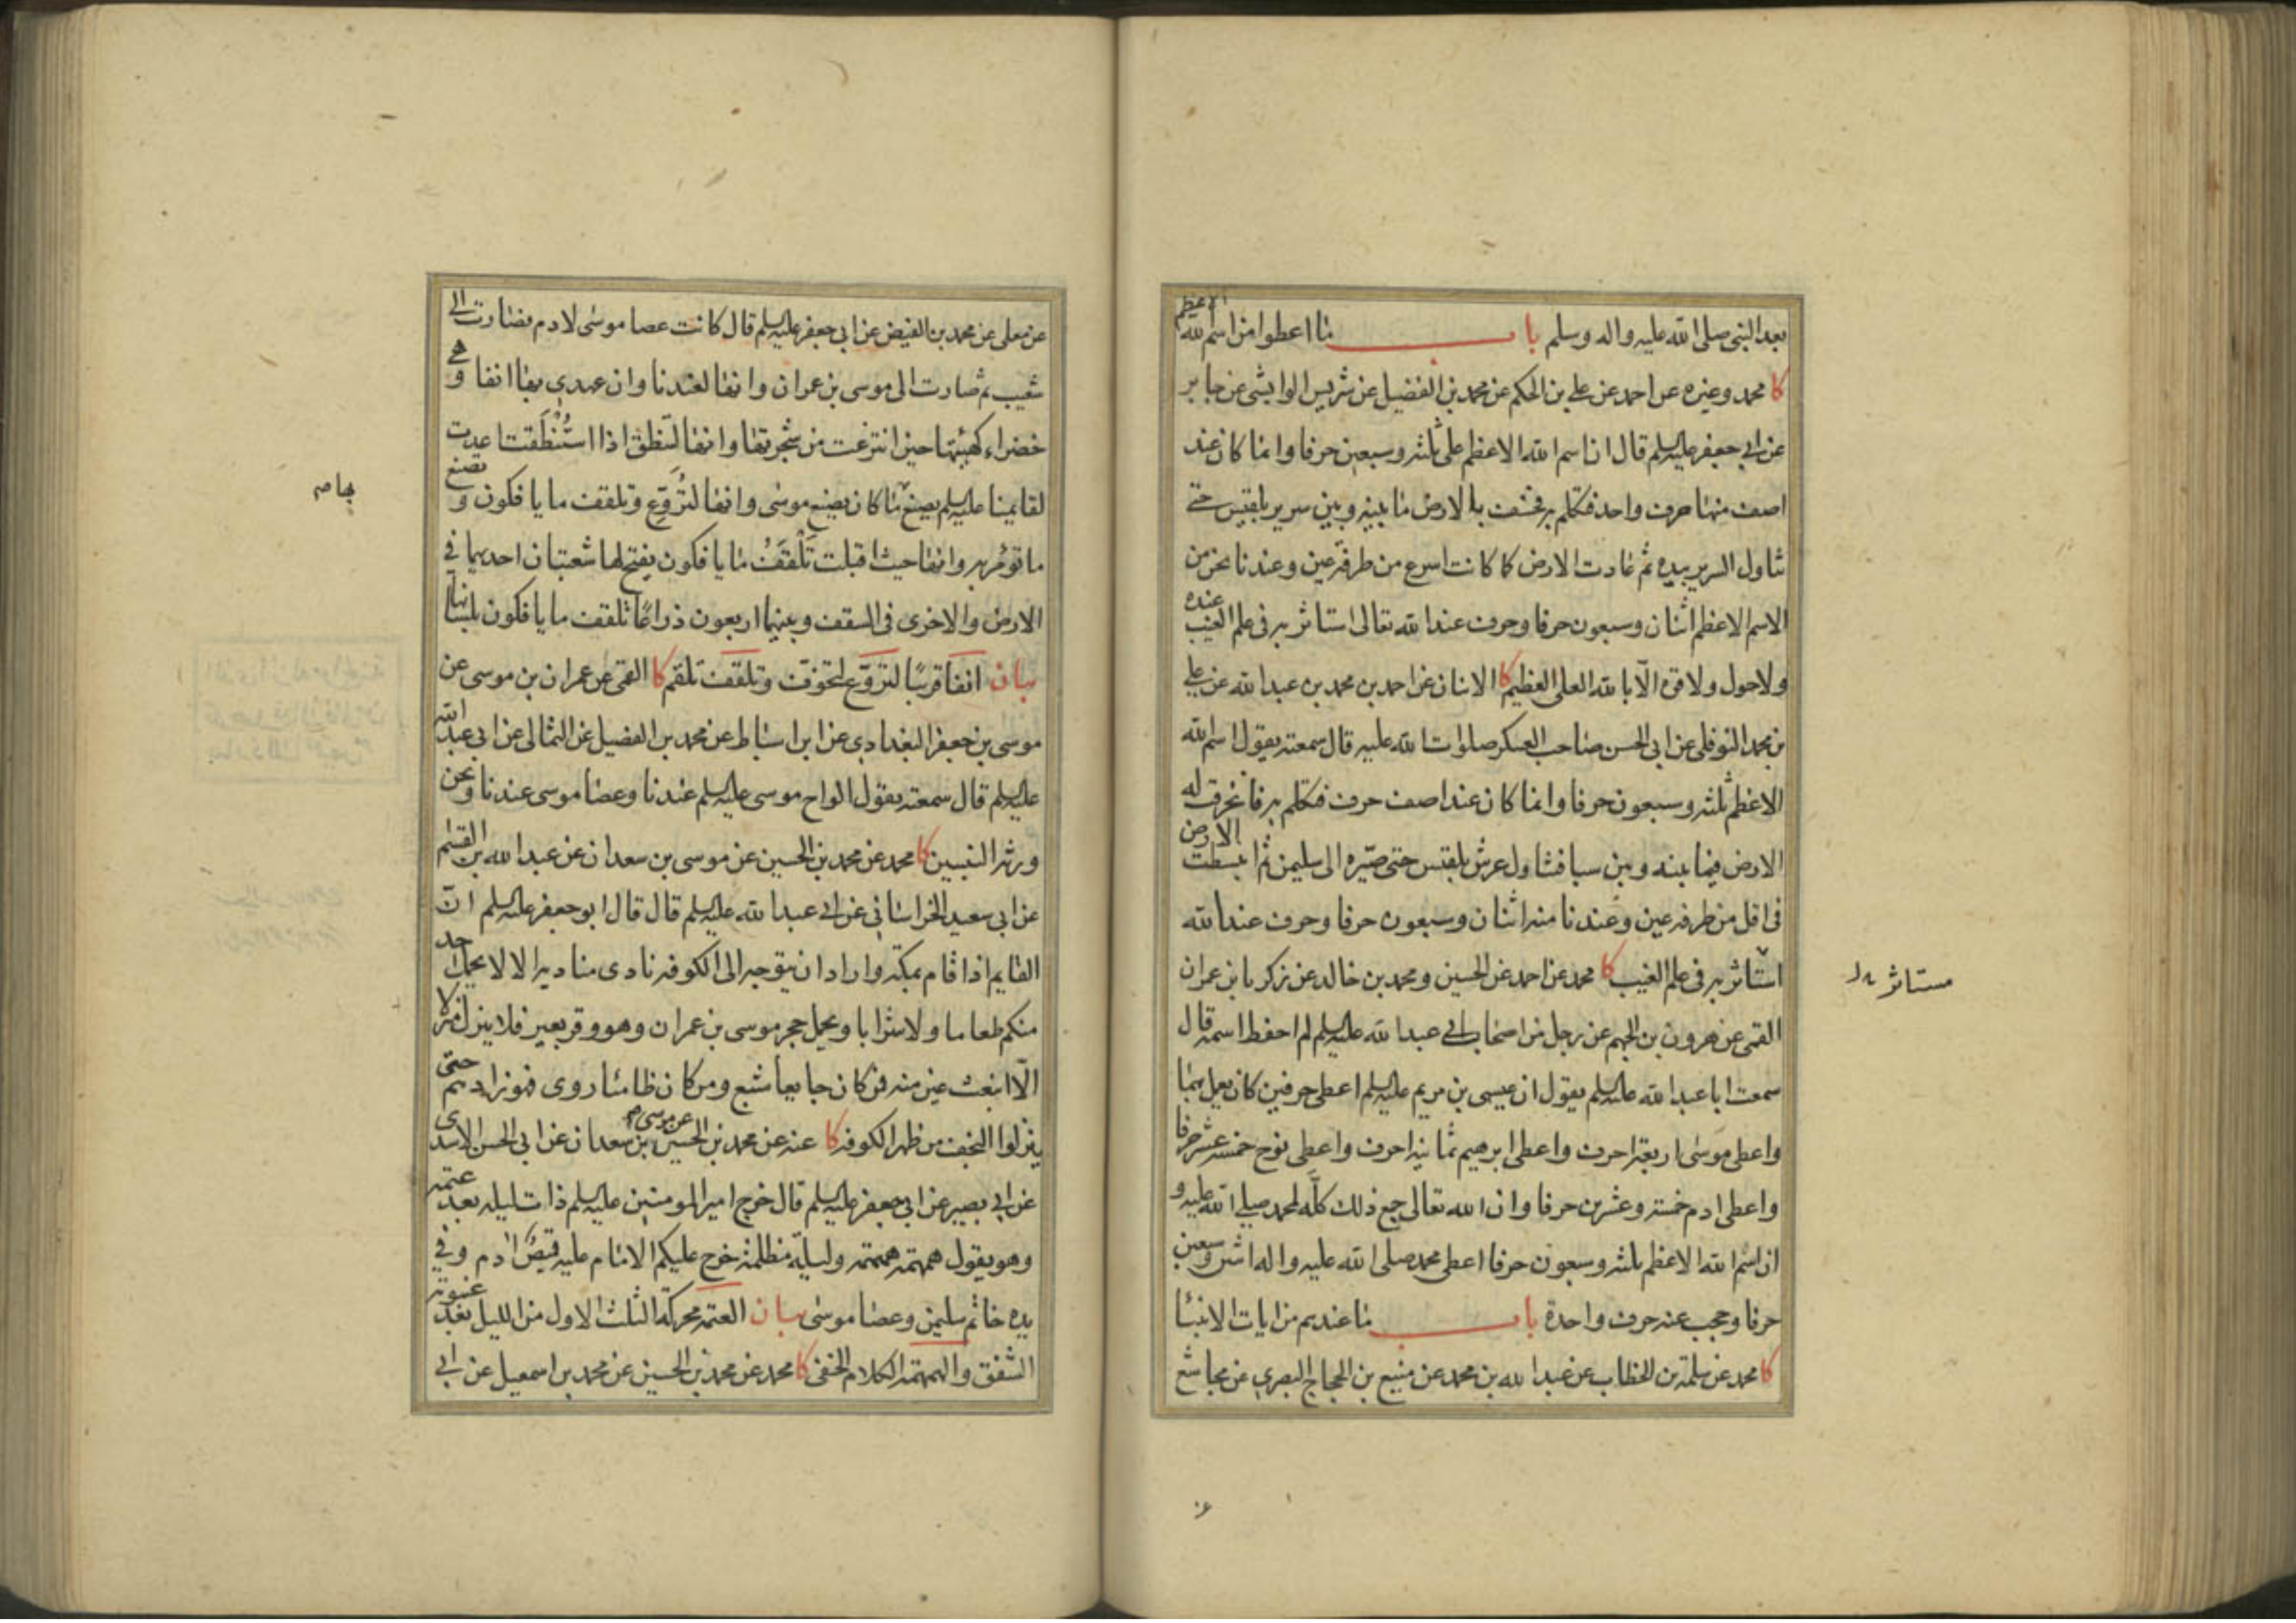 بعد النبي صلى الله عليه واله وسلم باب ما اعطوا من اسم الله الاعظم
كا محمد وغيره عن احمد عن علي بن الحكم عن محمد بن الفضيل عن شريس الوابشي عن جابر
عن ابي جعفر عليه السلم قال ان اسم الله الاعظم على ثلثه وسبعين حرفا وانما كان عند
اصف منها حرف واحد فتكلم به فخسف بالارض ما بينه وبين سرير بلقيس حتى
تناول السرير بيده ثم عادت الارض كما كانت اسرع من طرفة عين وعندنا نحن من
الاسم الاعظم اثنان وسبعون حرفا وحرف عند الله تعالى استاثر به في علم الغيب عنده
ولا حول ولا قوة الّا بالله العلي العظيم كا الاثنان عن احمد بن محمد بن عبد الله عن علي
بن محمد النوفلي عن ابي الحسن صاحب العسكر صلوات الله عليه قال سمعته يقول اسم الله
الاعظم ثلثه وسبعون حرفا وانما كان عند اصف حرف فتكلم به فانخرقت له
الارض فيما بينه وبين سبا فتناول عرش بلقيس حتى صيّره الى سليمن ثم انبسطت الارض
في اقل من طرفه عين وعندنا منه اثنان وسبعون حرفا وحرف عند الله
استاثر به في علم الغيب كا محمد عن احمد عن الحسين ومحمد بن خالد عن زكريا بن عمران
القمي عن هرون بن الجهم عن رجل من اصحاب ابي عبد الله عليه السلم لم احفظ اسمه قال
سمعت ابا عبد الله عليه السلم يقول ان عيسى بن مريم عليه السلم اعطي حرفين كان يعمل بهما
واعطي موسى اربعة احرف واعطي ابرهيم ثمانيه احرف واعطي نوح خمسه عشر حرفا
واعطي ادم خمسة وعشرين حرفا وان الله تعالى جمع ذلك كلّه لمحمد صلى الله عليه و
ان اسم الله الاعظم ثلثه وسبعون حرفا اعطي محمد صلى الله عليه واله اثنين وسبعين
حرفا وحجب عنه حرف واحدة باب ما عندهم من ايات الانبيا
كا محمد عن سلمة بن الخطاب عن عبد الله بن محمد عن منيع بن الحجاج البصري عن مجاشع
مستاثر
عن معلى عن محمد بن الفيض عن ابي جعفر عليه السلم قال كانت عصا موسى لادم فصارت الى
شعيب ثم صارت الى موسى بن عمران وانها لعندنا وان عهدي بها انفا وهي
خضراء كهيئتها حين انتزعت من شجرتها وانها لتنطق اذا استُنْطَقت اعدت
لقايمنا عليه السلم يصنع بها كان يصنع موسى وانها لتُرَوِّع وتلقف ما يافكون وتصنع
ما تؤمر به وانها حيث اقبلت تَلْقَفُ ما يافكون يفتح لها شعبتان احديهما في
الارض والاخرى في السقف وبينهما اربعون ذراعًا تلقف ما يافكون بلسانها
بيان انفا قريبًا لتروّع لتخوّف وتلقف تلقم كا القمي عن عمران بن موسى عن
موسى بن جعفر البغدادي عن ابن اسباط عن محمد بن الفضيل عن الثمالي عن ابي عبد الله
عليه السلم قال سمعته يقول الواح موسى عليه السلم عندنا وعصا موسى عندنا ونحن
ورثه النبيين كا محمد عن محمد بن الحسين عن موسى بن سعدان عن عبد الله بن القسم
عن ابي سعيد الخراساني عن ابي عبد الله عليه السلم قال قال ابو جعفر عليه السلم انّ
القايم اذا قام بمكة واراد ان يتوجه الى الكوفه نادى مناديه الا لا يحمل احد
منكم طعاما ولا شرابا ويحمل حجر موسى بن عمران وهو وقر بعير فلا ينزل منزلا
الّا انبعث عين منه فمن كان جايعا شبع ومن كان ظامئا روى فهو زادهم حتى
ينزلوا النجف من ظهر الكوفه كا عنه عن محمد بن الحسين عن موسى بن سعدان عن ابي الحسن الاسدى
عن ابي بصير عن ابي جعفر عليه السلم قال خرج امير المومنين عليه السلم ذات ليله بعد عتمه
وهو يقول همهمه همهمه وليلة مظلمة خرج عليكم الامام عليه قميص ادم وفي
يده خاتم سليمن وعصا موسى بيان العتمه محركة الثلث الاول من الليل بعد غيبوبه
الشفق والهمهمة الكلام الخفي كا محمد عن محمد بن الحسين عن محمد بن اسمعيل عن ابي